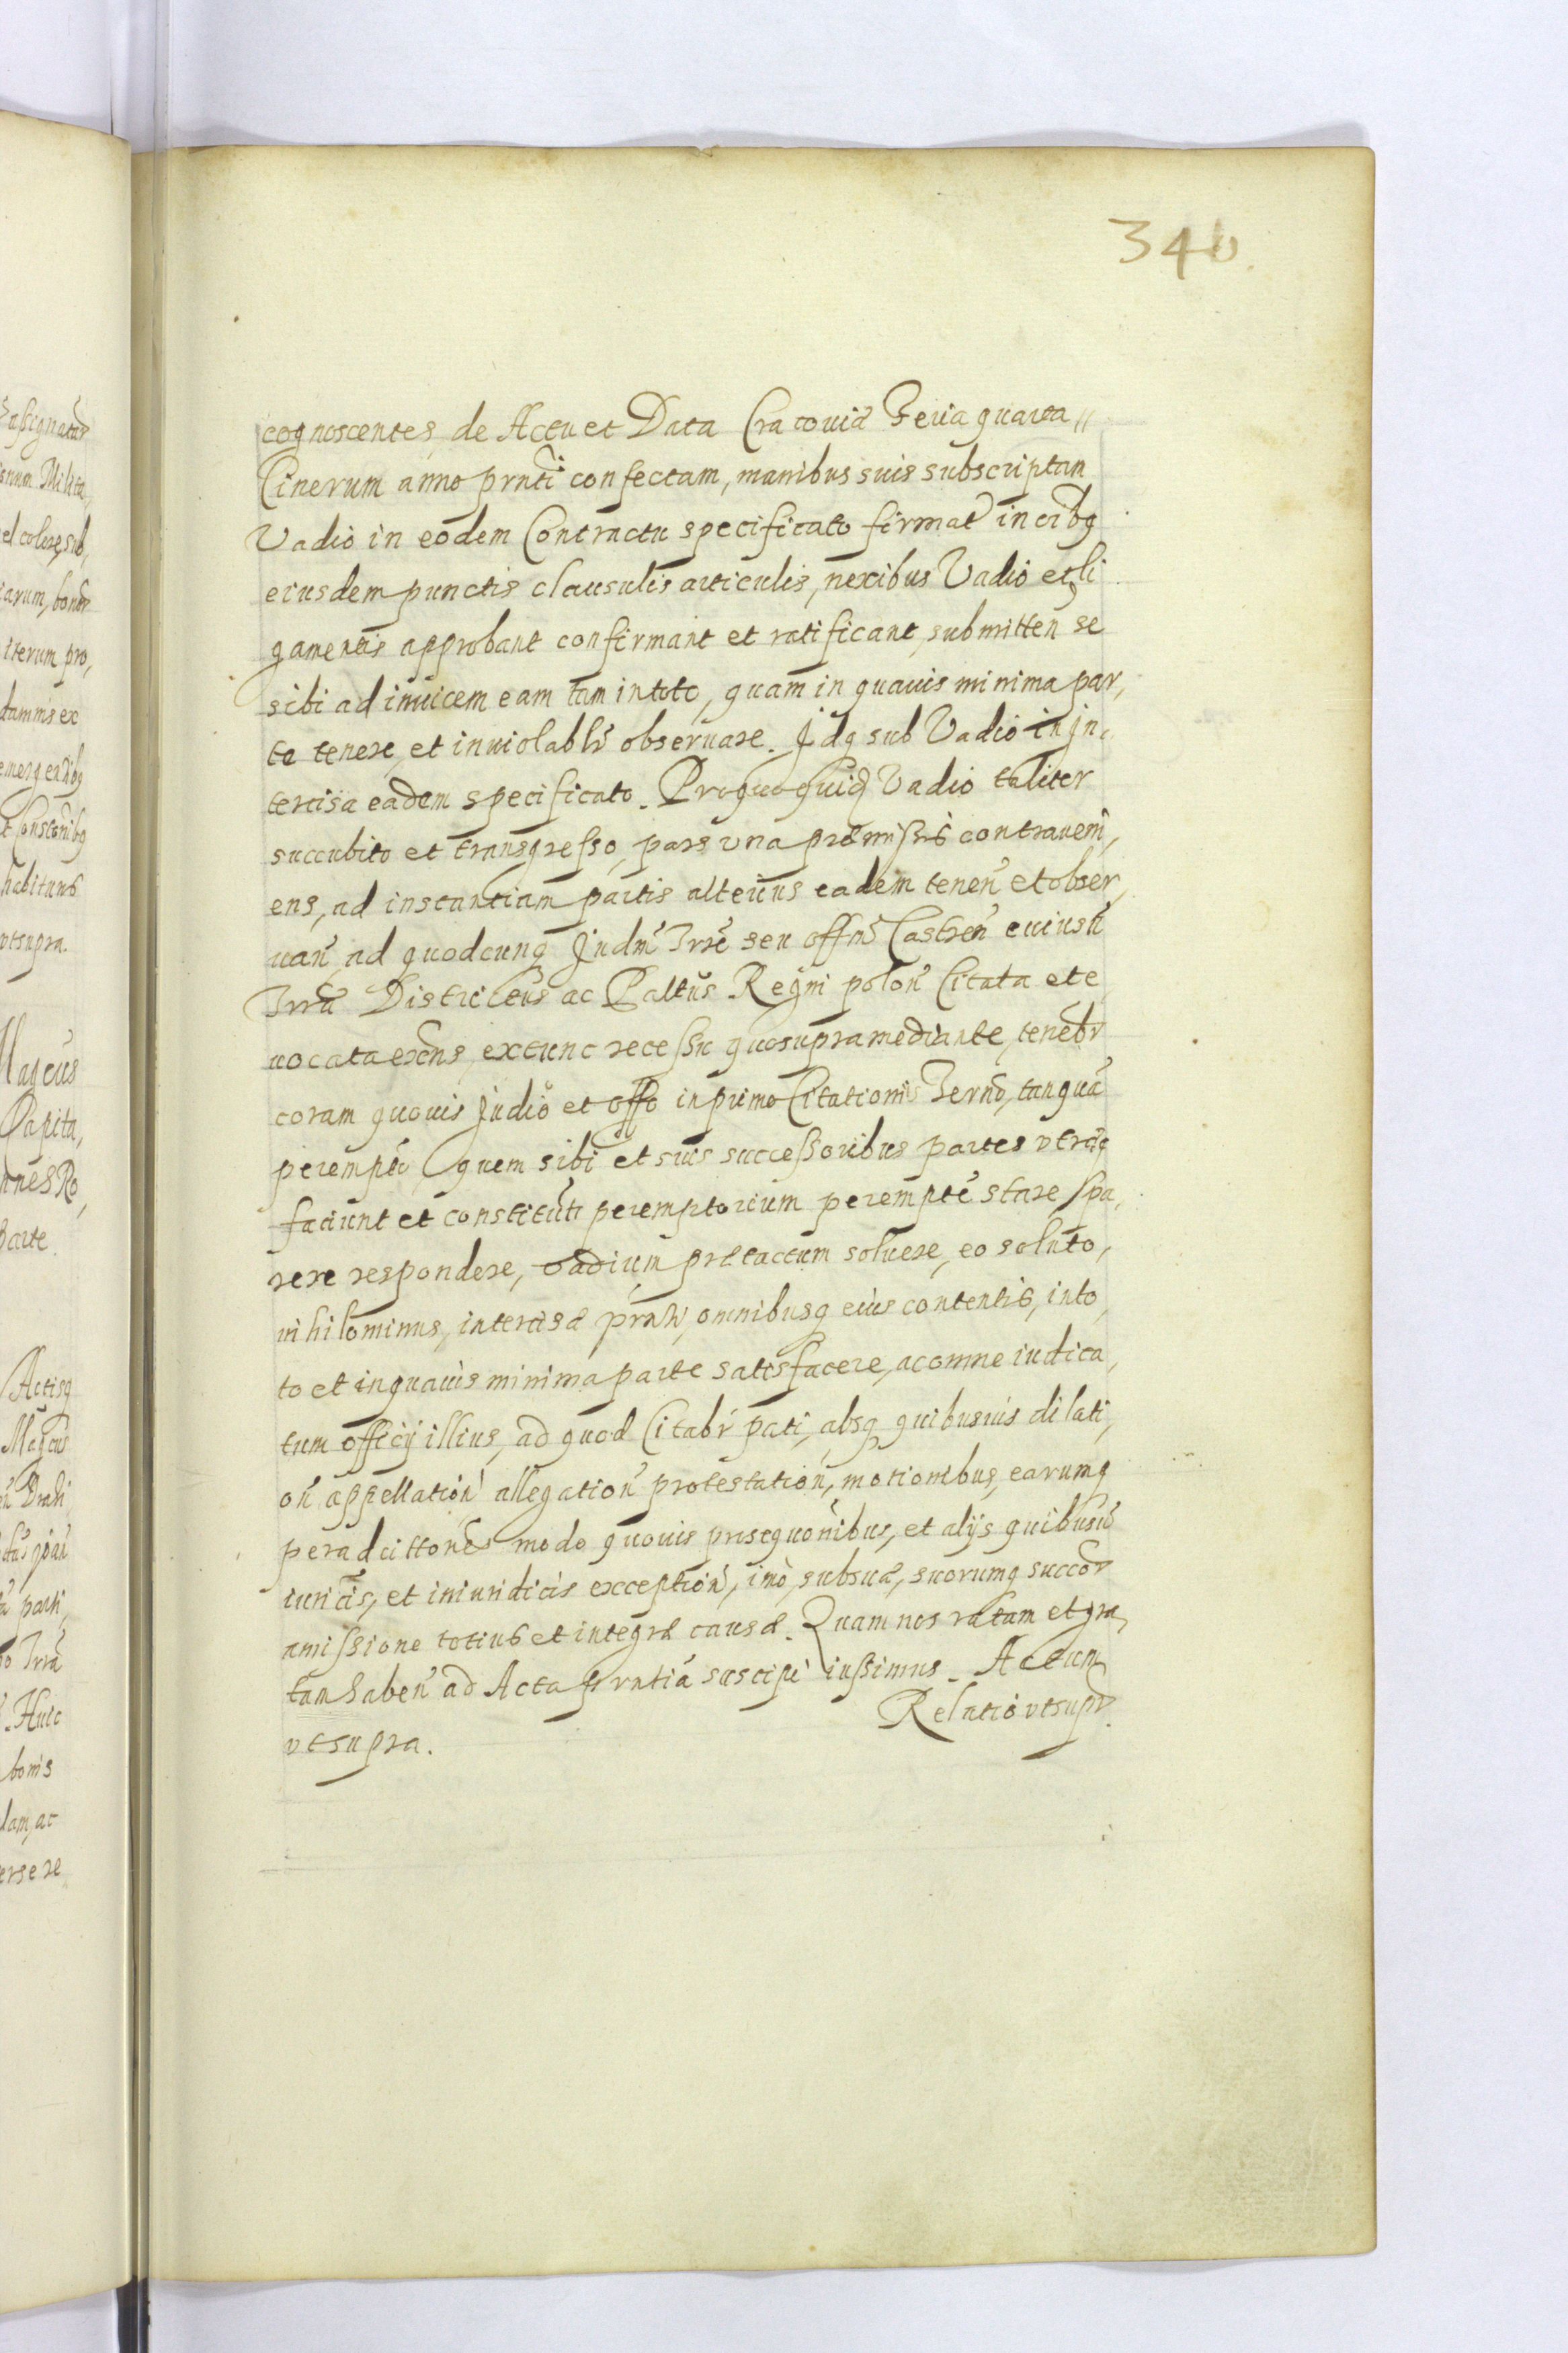 340
cognoscentes, de Actu et Data Cracouiæ Feria quarta
Cinerum anno prnti confectam, manibus suis subscriptam
Vadio in eodem Contractu specificato firmat in oibq
eiusdem punctis clausulis articulis, nexibus Vadio et li
gamentis approbant confirmant et ratificant, submitten se
sibi ad inuicem eam tam in toto, quam in quauis minima par,
te tenere, et inuiolablr observare. Idq sub Vadio in In,
tercisa eadem specificato. Pro quo quid Vadio taliter
succubito et transgresso, pars vna præmissis contraueni,
ens, ad instantiam partis alterius eadem tenen et obser,
uan ad quodcunq Judm Trre seu offm Castren cuiusuis
Trræ Districtus ac Paltus Regni polon Citata et e
uocata exens, extunc recessu quo supra mediante, tenebr
coram quouis Judio et offo in primo Citationis Terno, tanquã
perempto, quem sibi et suis successoribus partes vtræq
faciunt et constituũt peremptorium perempte stare, pa,
rere respondere, vadium prætactum soluere, eo soluto,
nihilominus, intercisæ prnti, omnibusq eius contentis, in to,
to et in quauis minima parte satisfacere, ac omne iudica,
tum officij illius, ad quod Citabr pati, absq quibusuis dilati,
on appellation allegation protestation, motionibus, earumq
per adcitones modo quouis prosequonibus, et alijs quibusuis
iuricis, et iniuridicis exception, imo, sub sua, suorumq succor
amissione totius et integræ causæ. Quam nos ratam et gra,
tam haben ad Acta prntia suscipi iussimus. Actum
vtsupra. Relatio vtsupr